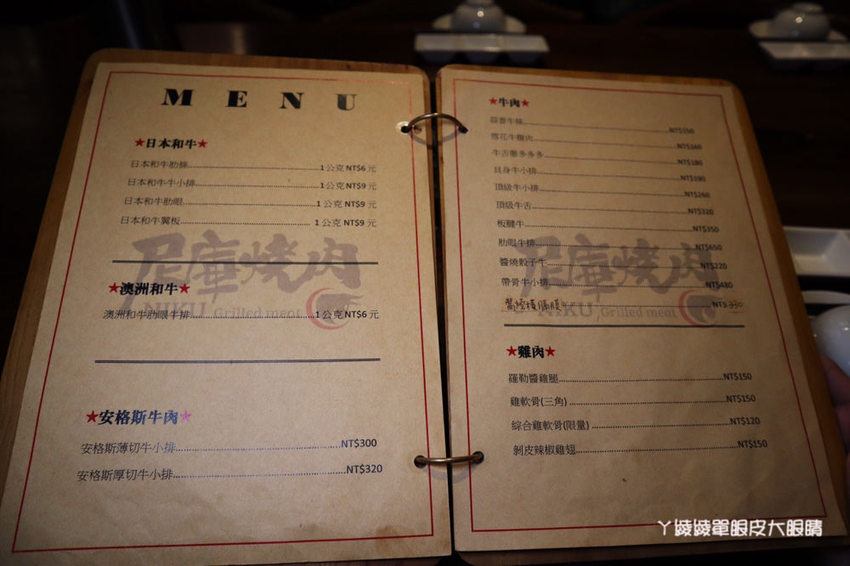 MENU
★日本和牛★
日本和牛肋條 1公克 NT$6 元
日本和牛牛小排 1公克 NT$9 元
日本和牛肋眼 1公克 NT$9 元
日本和牛翼板 1公克 NT$9 元
尼庫燒肉
NIKU Grilled meat
★澳洲和牛★
澳洲和牛肋眼牛排 1公克 NT$6 元
★安格斯牛肉★
安格斯薄切牛小排 NT$300
安格斯厚切牛小排 NT$320
★牛肉★
蒜香牛條 NT$150
雪花牛胸肉 NT$160
牛舌蔥多多多 NT$180
貝身牛小排 NT$190
頂級牛小排 NT$260
頂級牛舌 NT$320
板腱牛 NT$350
肋眼牛排 NT$650
醬燒骰子牛 NT$220
帶骨牛小排 NT$480
NT$ 330
尼庫燒肉
NIKU Grilled meat
★雞肉★
羅勒醬雞腿 NT$150
雞軟骨(三角) NT$150
綜合雞軟骨(限量) NT$120
剝皮辣椒雞翅 NT$150
ㄚ綾綾單眼皮大眼睛